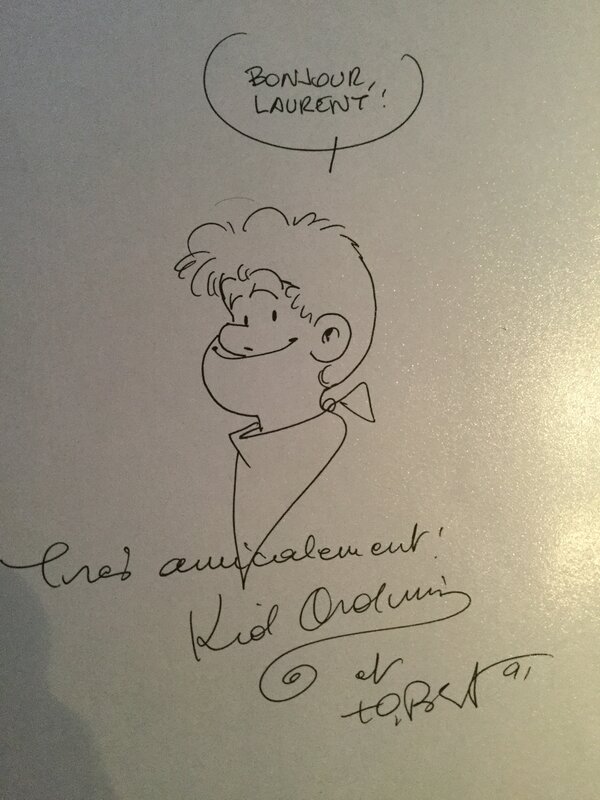 BONJOUR,
LAURENT!
Très amicalement!
Kid Ordinn
et
91